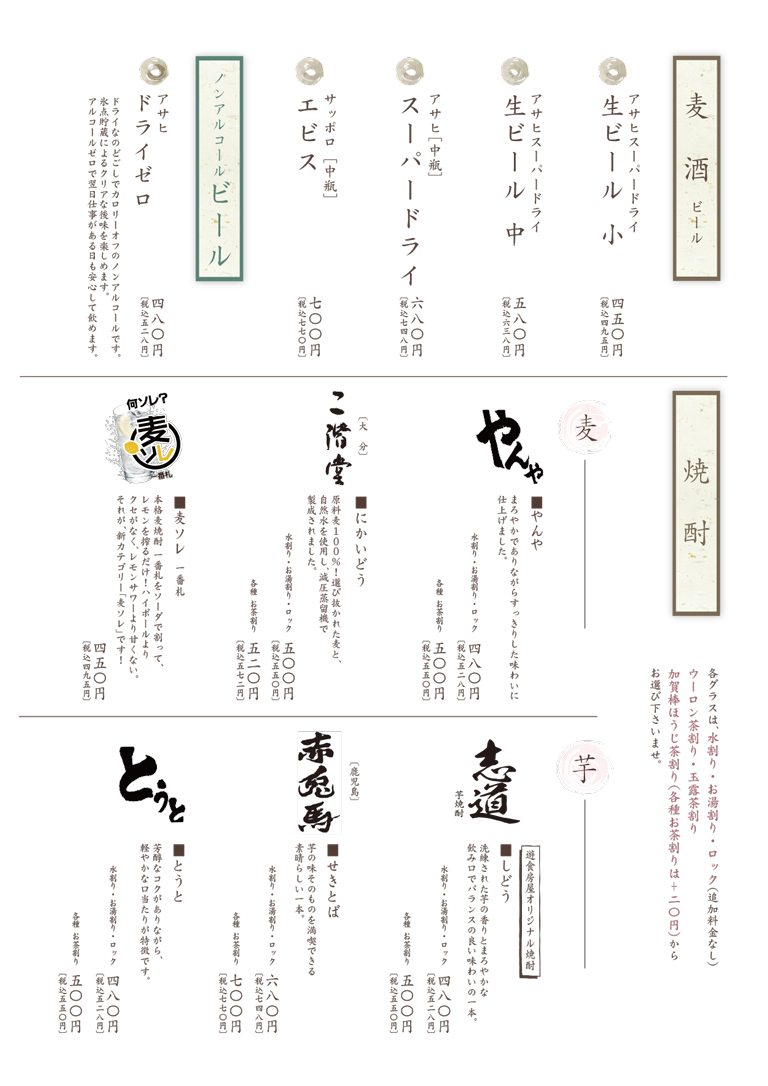 麦酒 ビール
アサヒスーパードライ
生ビール 小
四五〇円
［税込四九五円］
アサヒスーパードライ
生ビール 中
五八〇円
［税込六三八円］
アサヒ［中瓶］
スーパードライ
六八〇円
［税込七四八円］
サッポロ［中瓶］
エビス
七〇〇円
［税込七七〇円］
ノンアルコールビール
アサヒ
ドライゼロ
四八〇円
［税込五二八円］
ドライなのどごしでカロリーオフのノンアルコールです。
氷点貯蔵によるクリアな後味を楽しめます。
アルコールゼロで翌日仕事がある日も安心して飲めます。
焼酎
各グラスは、水割り・お湯割り・ロック（追加料金なし）
ウーロン茶割り・玉露茶割り
加賀棒ほうじ茶割り（各種お茶割りは＋二〇円）から
お選び下さいませ。
麦
やんや
■やんや
まろやかでありながらすっきりした味わいに
仕上げました。
水割り・お湯割り・ロック
四八〇円
［税込五二八円］
各種 お茶割り
五〇〇円
［税込五五〇円］
［大分］
二階堂
■にかいどう
原料麦100％！選び抜かれた麦と、
自然水を使用し、減圧蒸留機で
製成されました。
水割り・お湯割り・ロック
五〇〇円
［税込五五〇円］
各種 お茶割り
五二〇円
［税込五七二円］
何ソレ？
麦ソレ
一番札
■麦ソレ 一番札
本格麦焼酎 一番札をソーダで割って、
レモンを搾るだけ！ハイボールより
クセがなく、レモンサワーより甘くない。
それが、新カテゴリー「麦ソレ」です！
四五〇円
［税込四九五円］
芋
志道
芋焼酎
遊食房屋オリジナル焼酎
■しどう
洗練された芋の香りとまろやかな
飲み口でバランスの良い味わいの一本。
水割り・お湯割り・ロック
四八〇円
［税込五二八円］
各種 お茶割り
五〇〇円
［税込五五〇円］
［鹿児島］
赤兎馬
■せきとば
芋の味そのものを満喫できる
素晴らしい一本。
水割り・お湯割り・ロック
六八〇円
［税込七四八円］
各種 お茶割り
七〇〇円
［税込七七〇円］
とうと
■とうと
芳醇なコクがありながら、
軽やかな口当たりが特徴です。
水割り・お湯割り・ロック
四八〇円
［税込五二八円］
各種 お茶割り
五〇〇円
［税込五五〇円］